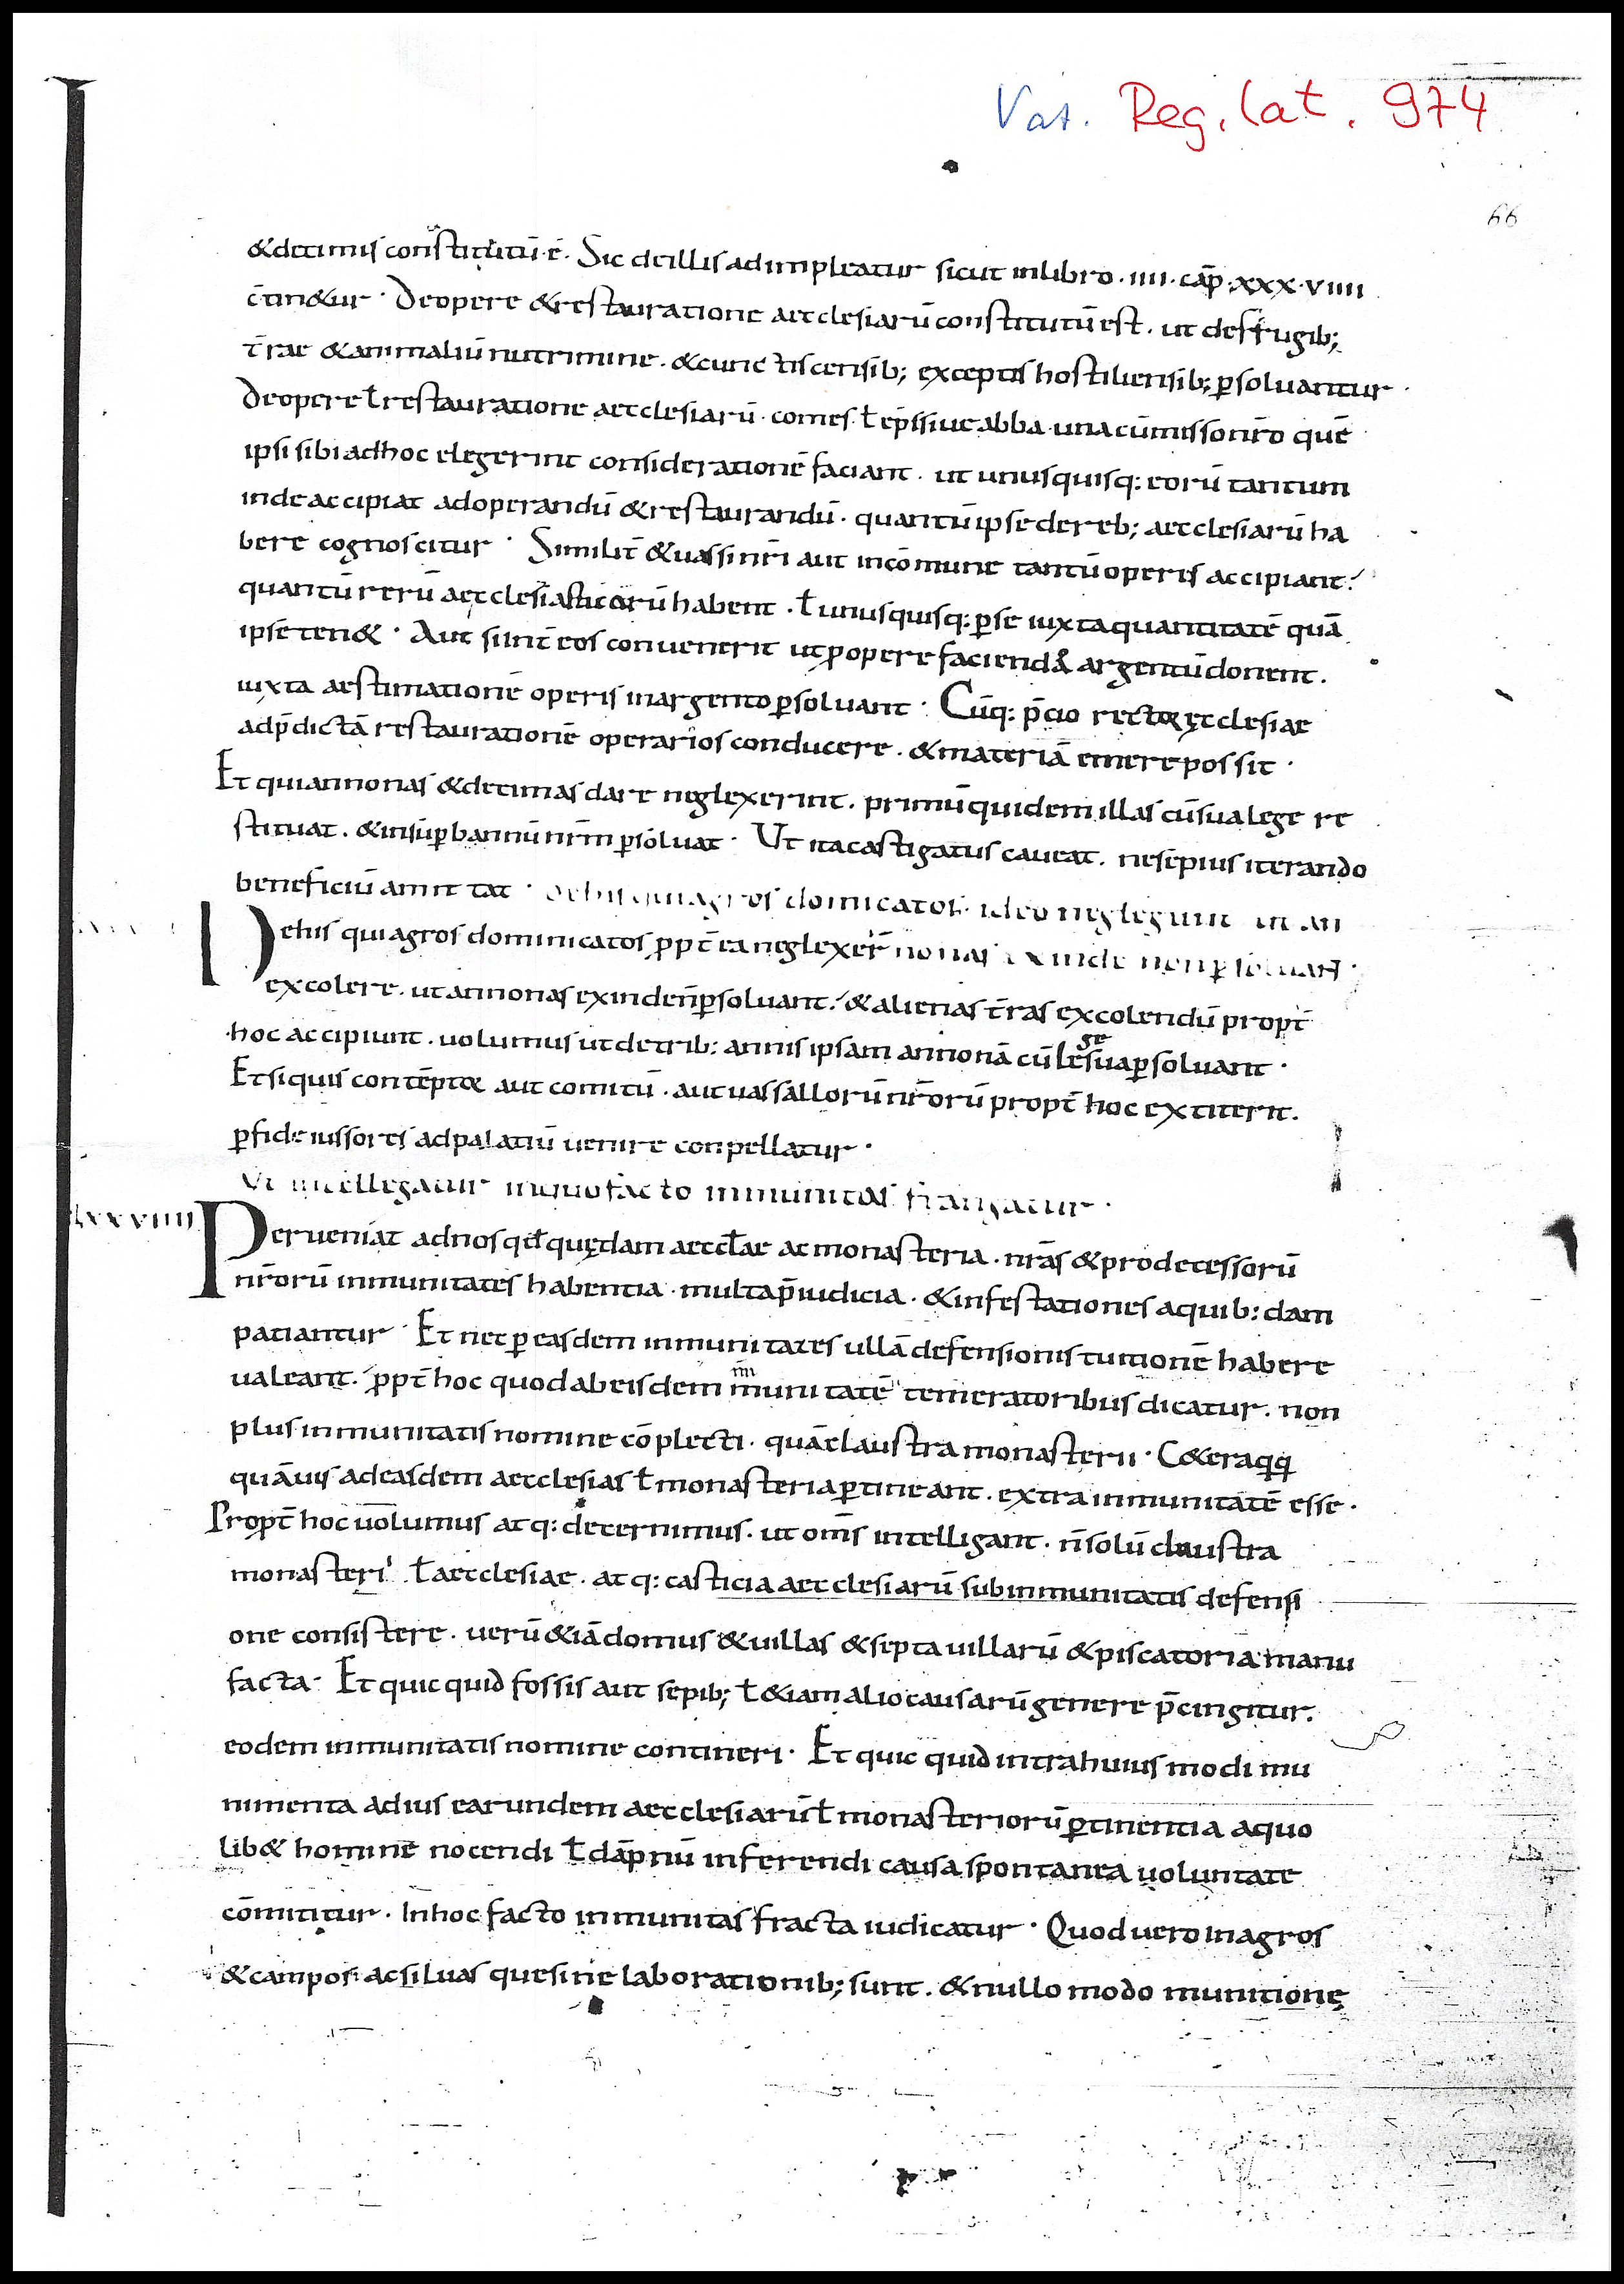 Vat. Reg. lat. 974
66
&decimis constitutū·ē· Sic deillisadimpleatur sicut inlibro·IIII·cap̄·XXX·VIIII
c̄tin&ur· Deopere &restauratione aecclesiarū constitutū est· ut defrugib;
t̄rae &animaliū nutrimine· &cunctiscensib; exceptis hostiliensib; ꝑsoluantur·
Deopere ł restauratione aecclesiarū· comes ł ep̄s siue abba unacū missonr̄o quē
ipsi sibi adhoc elegerint considerationē faciant· ut unusquisq: eorū tantum
inde accipiat adoperandū &restaurandū· quantū ipse dereb; aecclesiarū ha
bere cognoscitur· Similit̄ &uassi nr̄i aut incōmune tantū operis accipiant·
quantū rerū aecclesiasticarū habent· ł unusquisq: ꝑse iuxtaquantitatē quā
ipse ten&· Aut si int̄ eos conuenerit ut ꝓopere faciendo argentū donent·
iuxta aestimationē operis inargento ꝑsoluant· Cūq: p̄cio rector ęcclesiae
adp̄dictā restaurationē operarios conducere· &materiā emere possit·
Et quiannonas &decimas dare neglexerint· primū quidem illas cū sua lege re
stituat· &insuꝑ bannū nr̄m ꝑsoluat· Ut itacastigatus caueat· nesepius iterando
beneficiū amittat· Dehis quiagros domicatos ideo neglegunt ut an
nonas exinde non ꝑsoluant·
Dehis qui agros dominicatos ꝓpt̄ ea neglexer̄
excolere· ut annonas exinden̄ ꝑsoluant· &alienas t̄ras excolendū propt̄
hoc accipiunt· uolumus ut detrib: annis ipsam annonā cū lege sua ꝑsoluant·
Etsiquis contēptor aut comitū· aut uassallorū nr̄orū propt̄ hoc extiterit·
ꝑfideiussores adpalatiū uenire conpellatur·
Ut intellegatur inquofacto inmunitas frangatur·
LXXXVIIII
Perueniat adnos qđ quędam aeccłae ac monasteria· nr̄as &prodecessorū
nr̄orū inmunitates habentia· multa p̄iudicia· &infestationes aquib: dam
patiantur· Et nec ꝑ easdem inmunitates ullā defensionis tuitionē habere
ualeant· ꝓpt̄ hoc quod abeisdem immunitatē temeratoribus dicatur· non
plus inmunitatis nomine cōplecti· quā claustra monasterii· C&eraq̄q̄
quāuis adeasdem aecclesias ł monasteria ꝑtineant· extra inmunitatē esse·
Propt̄ hoc uolumus atq: decernimus· ut om̄s intelligant· n̄ solū claustra
monasteri ł aecclesiae· atq: casticia aecclesiarū sub inmunitatis defensi
one consistere· uerū &iā domus &uillas &septa uillarū &piscatoria manu
facta· Et quicquid fossis aut sepib; ł &iam alio causarū genere p̄cingitur·
eodem inmunitatis nomine contineri· Et quicquid intrahuius modi mu
nimenta adius earundem aecclesiarū ł monasteriorū ꝑtinentia aquo
lib& homine nocendi ł dāpnū inferendi causa spontanea uoluntate
cōmittitur· Inhoc facto inmunitas fracta iudicatur· Quod uero inagros
&campos acsiluas quesine laborationib; sunt· &nullo modo munitione